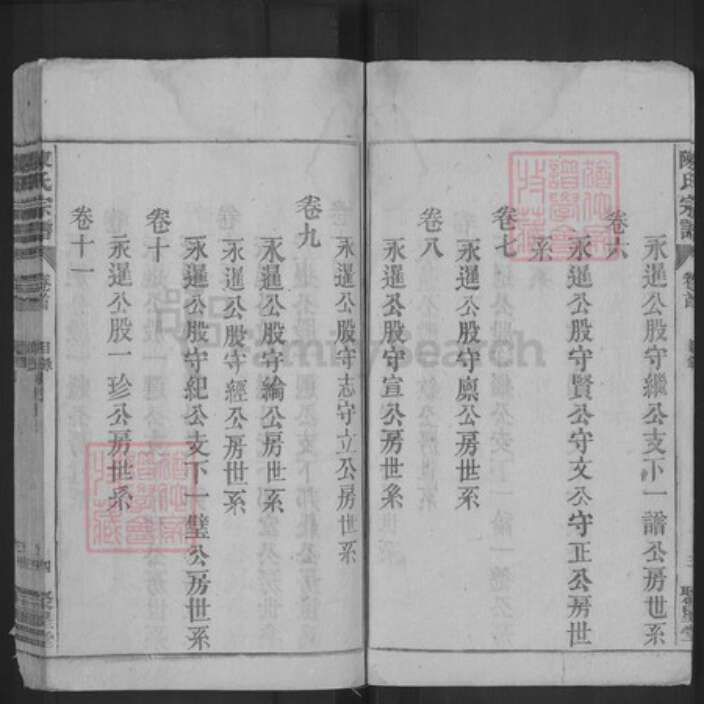 陳氏宗譜
卷首
三
聚星堂
永暹公股守繼公支下一譜公房世系
卷六
永暹公股守賢公守文公守正公房世
系
卷七
永暹公股守原公房世系
卷八
永暹公股守宣公房世系
永暹公股守志守立公房世系
卷九
永暹公股守綸公房世系
永暹公股守經公房世系
永暹公股守紀公支下一璧公房世系
卷十
永暹公股一珍公房世系
卷十一
陳氏宗譜
卷首
目錄
四
聚星堂
FamilySearch